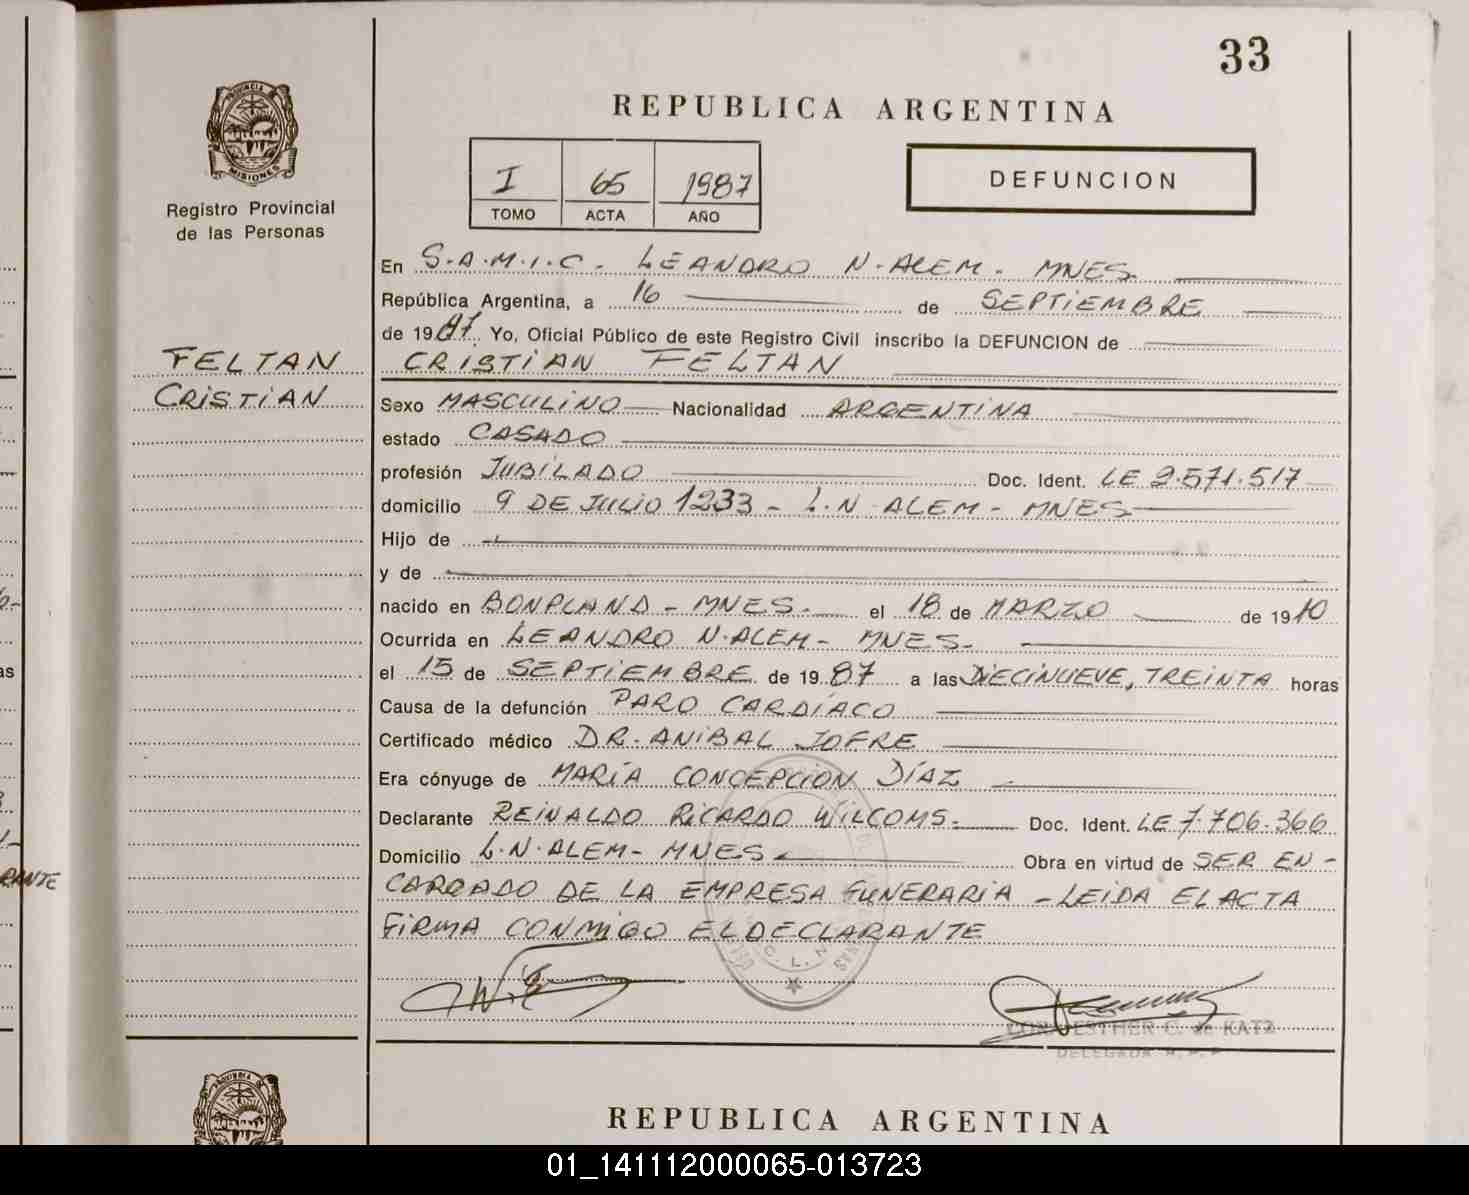 33
REPUBLICA ARGENTINA
PROVINCIA DE
MISIONES
Registro Provincial
de las Personas
I 65 1987
TOMO ACTA AÑO
DEFUNCION
En S.A.M.I.C. LEANDRO N. ALEM. MNES.
República Argentina, a 16 de SEPTIEMBRE
de 1987 Yo, Oficial Público de este Registro Civil inscribo la DEFUNCION de
FELTAN
CRISTIAN
CRISTIAN FELTAN
Sexo MASCULINO Nacionalidad ARGENTINA
estado CASADO
profesión JUBILADO Doc. Ident. LE 2.571.517
domicilio 9 DE JULIO 1233 - L.N. ALEM - MNES
Hijo de
y de
nacido en BONPLAND - MNES. el 18 de MARZO de 1910
Ocurrida en LEANDRO N. ALEM - MNES.
el 15 de SEPTIEMBRE de 1987 a las DIECINUEVE, TREINTA horas
Causa de la defunción PARO CARDÍACO
Certificado médico DR. ANIBAL JOFRE
Era cónyuge de MARÍA CONCEPCION DÍAZ
Declarante REINALDO RICARDO WILCOMS. Doc. Ident. LE 7.706.366
Domicilio L.N. ALEM - MNES Obra en virtud de SER EN-
CARGADO DE LA EMPRESA FUNERARIA - LEIDA EL ACTA
FIRMA CONMIGO EL DECLARANTE
ESTHER C. de KATZ
REPUBLICA ARGENTINA
RANTE
01_141112000065-013723